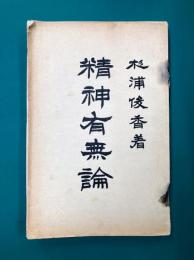 杉浦俊香著
精神有無論